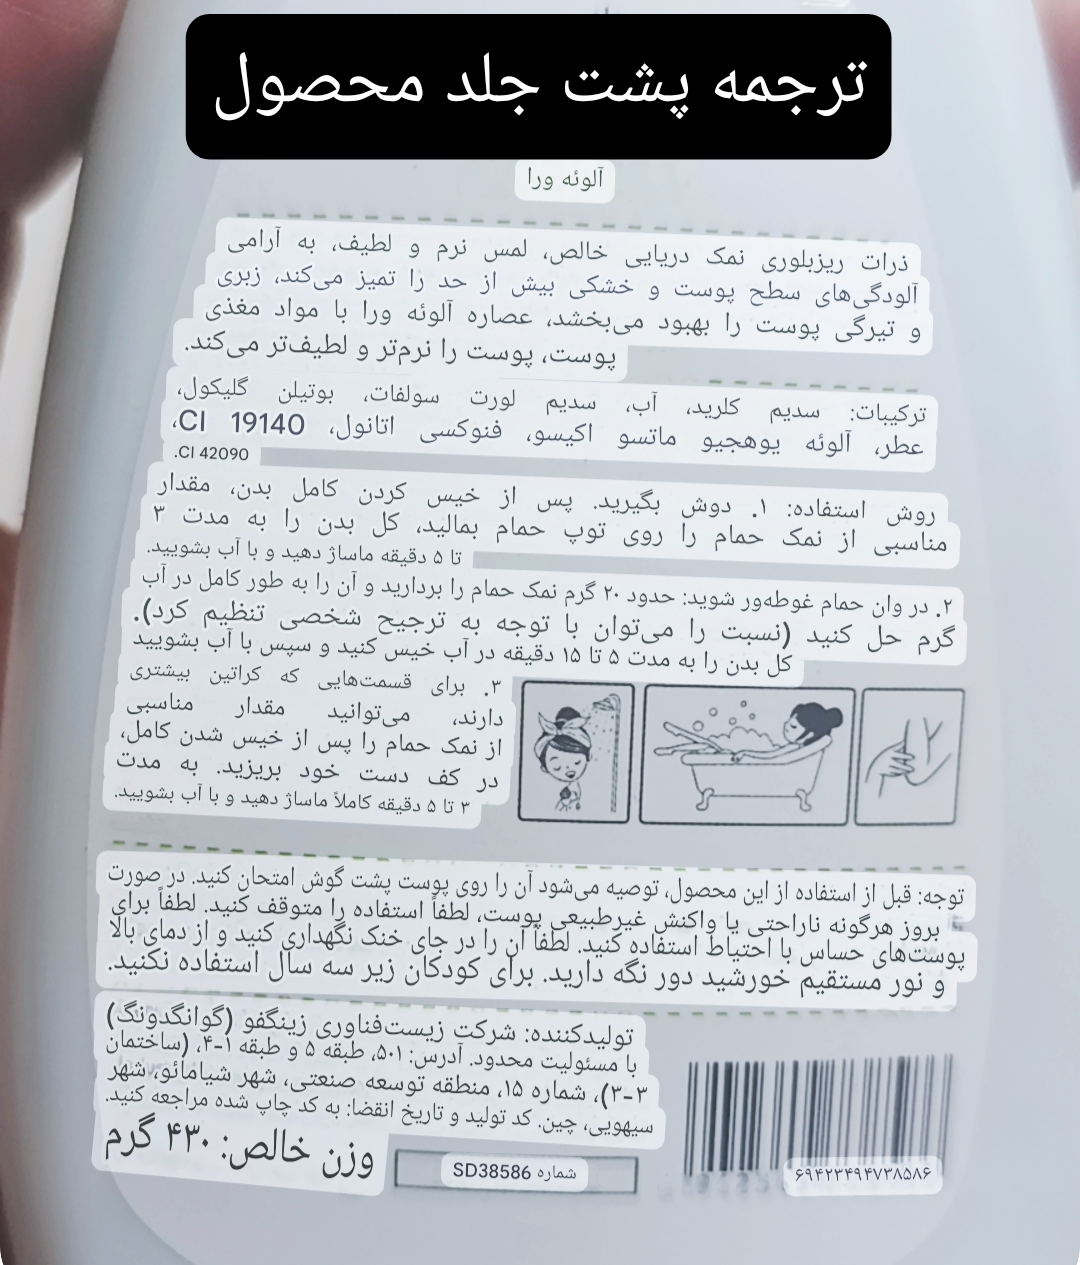 ترجمه پشت جلد محصول
آلوئه ورا
ذرات ریزبلوری نمک دریایی خالص، لمس نرم و لطیف، به آرامی
آلودگی‌های سطح پوست و خشکی بیش از حد را تمیز می‌کند، زبری
و تیرگی پوست را بهبود می‌بخشد، عصاره آلوئه ورا با مواد مغذی
پوست، پوست را نرم‌تر و لطیف‌تر می‌کند.
ترکیبات: سدیم کلرید، آب، سدیم لورت سولفات، بوتیلن گلیکول،
عطر، آلوئه یوهجیو ماتسو اکیسو، فنوکسی اتانول، CI 19140،
CI 42090.
روش استفاده: ۱. دوش بگیرید. پس از خیس کردن کامل بدن، مقدار
مناسبی از نمک حمام را روی توپ حمام بمالید، کل بدن را به مدت ۳
تا ۵ دقیقه ماساژ دهید و با آب بشویید.
۲. در وان حمام غوطه‌ور شوید: حدود ۲۰ گرم نمک حمام را بردارید و آن را به طور کامل در آب
گرم حل کنید (نسبت را می‌توان با توجه به ترجیح شخصی تنظیم کرد).
کل بدن را به مدت ۵ تا ۱۵ دقیقه در آب خیس کنید و سپس با آب بشویید
۳. برای قسمت‌هایی که کراتین بیشتری
دارند، می‌توانید مقدار مناسبی
از نمک حمام را پس از خیس شدن کامل،
در کف دست خود بریزید. به مدت
۳ تا ۵ دقیقه کاملاً ماساژ دهید و با آب بشویید.
توجه: قبل از استفاده از این محصول، توصیه می‌شود آن را روی پوست پشت گوش امتحان کنید. در صورت
بروز هرگونه ناراحتی یا واکنش غیرطبیعی پوست، لطفاً استفاده را متوقف کنید. لطفاً برای
پوست‌های حساس با احتیاط استفاده کنید. لطفاً آن را در جای خنک نگهداری کنید و از دمای بالا
و نور مستقیم خورشید دور نگه دارید. برای کودکان زیر سه سال استفاده نکنید.
تولیدکننده: شرکت زیست‌فناوری زینگفو (گوانگدونگ)
با مسئولیت محدود. آدرس: ۵۰۱، طبقه ۵ و طبقه ۱-۴، (ساختمان
۳-۳)، شماره ۱۵، منطقه توسعه صنعتی، شهر شیامائو، شهر
سیهویی، چین. کد تولید و تاریخ انقضا: به کد چاپ شده مراجعه کنید.
وزن خالص: ۴۳۰ گرم
شماره SD38586
۶۹۴۲۳۴۹۴۷۳۸۵۸۶